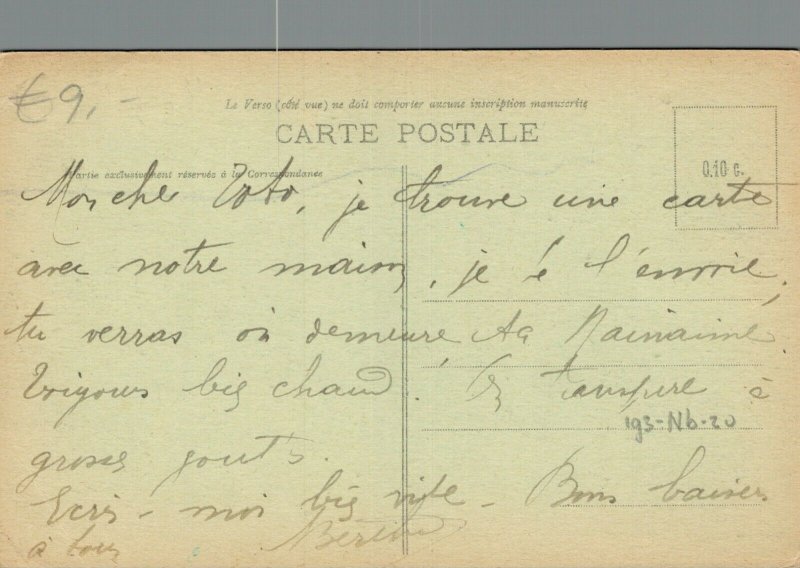 €9,-
Le Verso (côté vue) ne doit comporter aucune inscription manuscrite
CARTE POSTALE
Partie exclusivement réservée à la Correspondance
0.10 c.
Mon cher Toto, je trouve une carte
avec notre maison, je te l'envoie,
tu verras où demeure ta
Toujours bien chaud. On transpire à
grosses gouttes.
193-Nb-20
Ecris-moi bien vite - Bons baisers
à tous